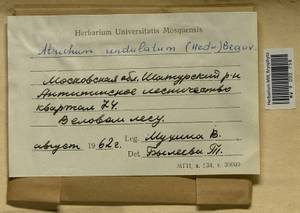 Herbarium Universitatis Mosquensis
Atrichum undulatum (Hedw.) Beauv.
Московская обл. Шатурский р-н
лесничество
квартал 74.
В еловом лесу.
август 1962 г. Leg. Мухина В.
Det. Былеева Т.
МГП, з. 134, т. 30000